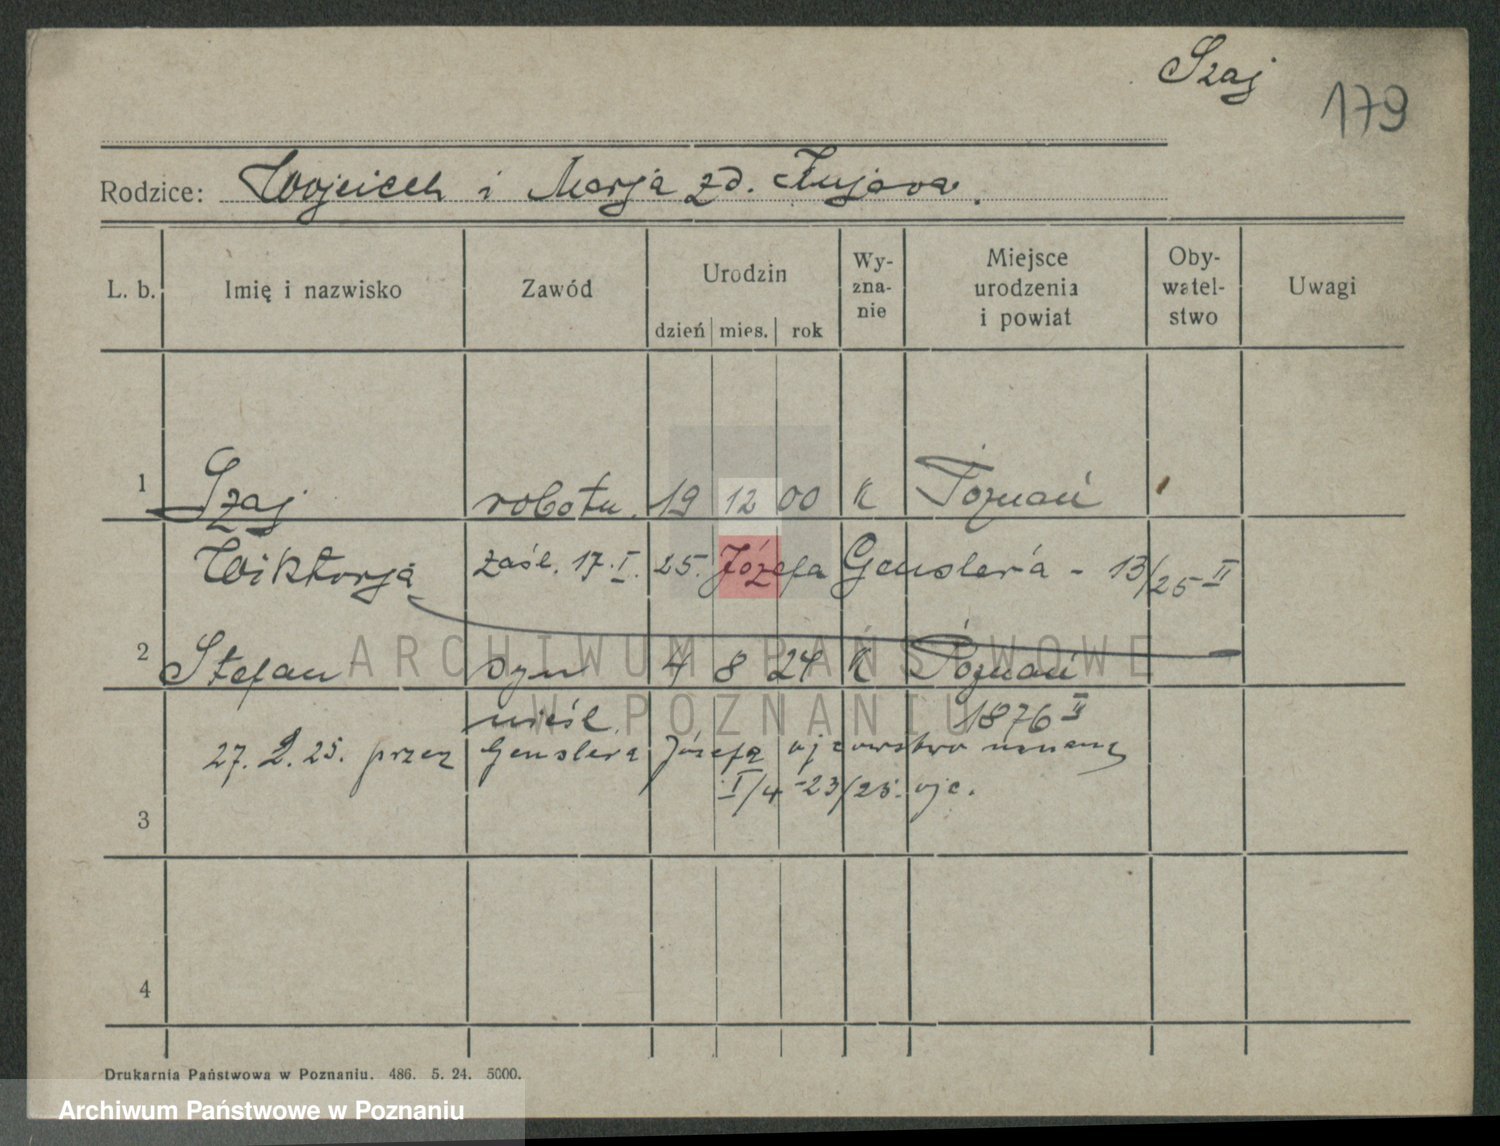 Szaj
179
Rodzice: Wojciech i Marja zd. Kujawa.
L. b. Imię i nazwisko Zawód Urodzin dzień mies. rok Wy-zna-nie Miejsce urodzenia i powiat Oby-watel-stwo Uwagi
1 Szaj robotn. 19 12 00 K Poznań
Wiktorja zaśl. 17.I.25. Józefa Genslera - 13/25 II
2 Stefan syn 4 8 24 K Poznań
nieśl. 1876 II
27. 2. 25. przez Genslera Józefa ojcowstwo uznane
I/4 -23/25. ojc.
3
4
Drukarnia Państwowa w Poznaniu. 486. 5. 24. 5000.
ARCHIWUM PAŃSTWOWE
W POZNANIU
Archiwum Państwowe w Poznaniu